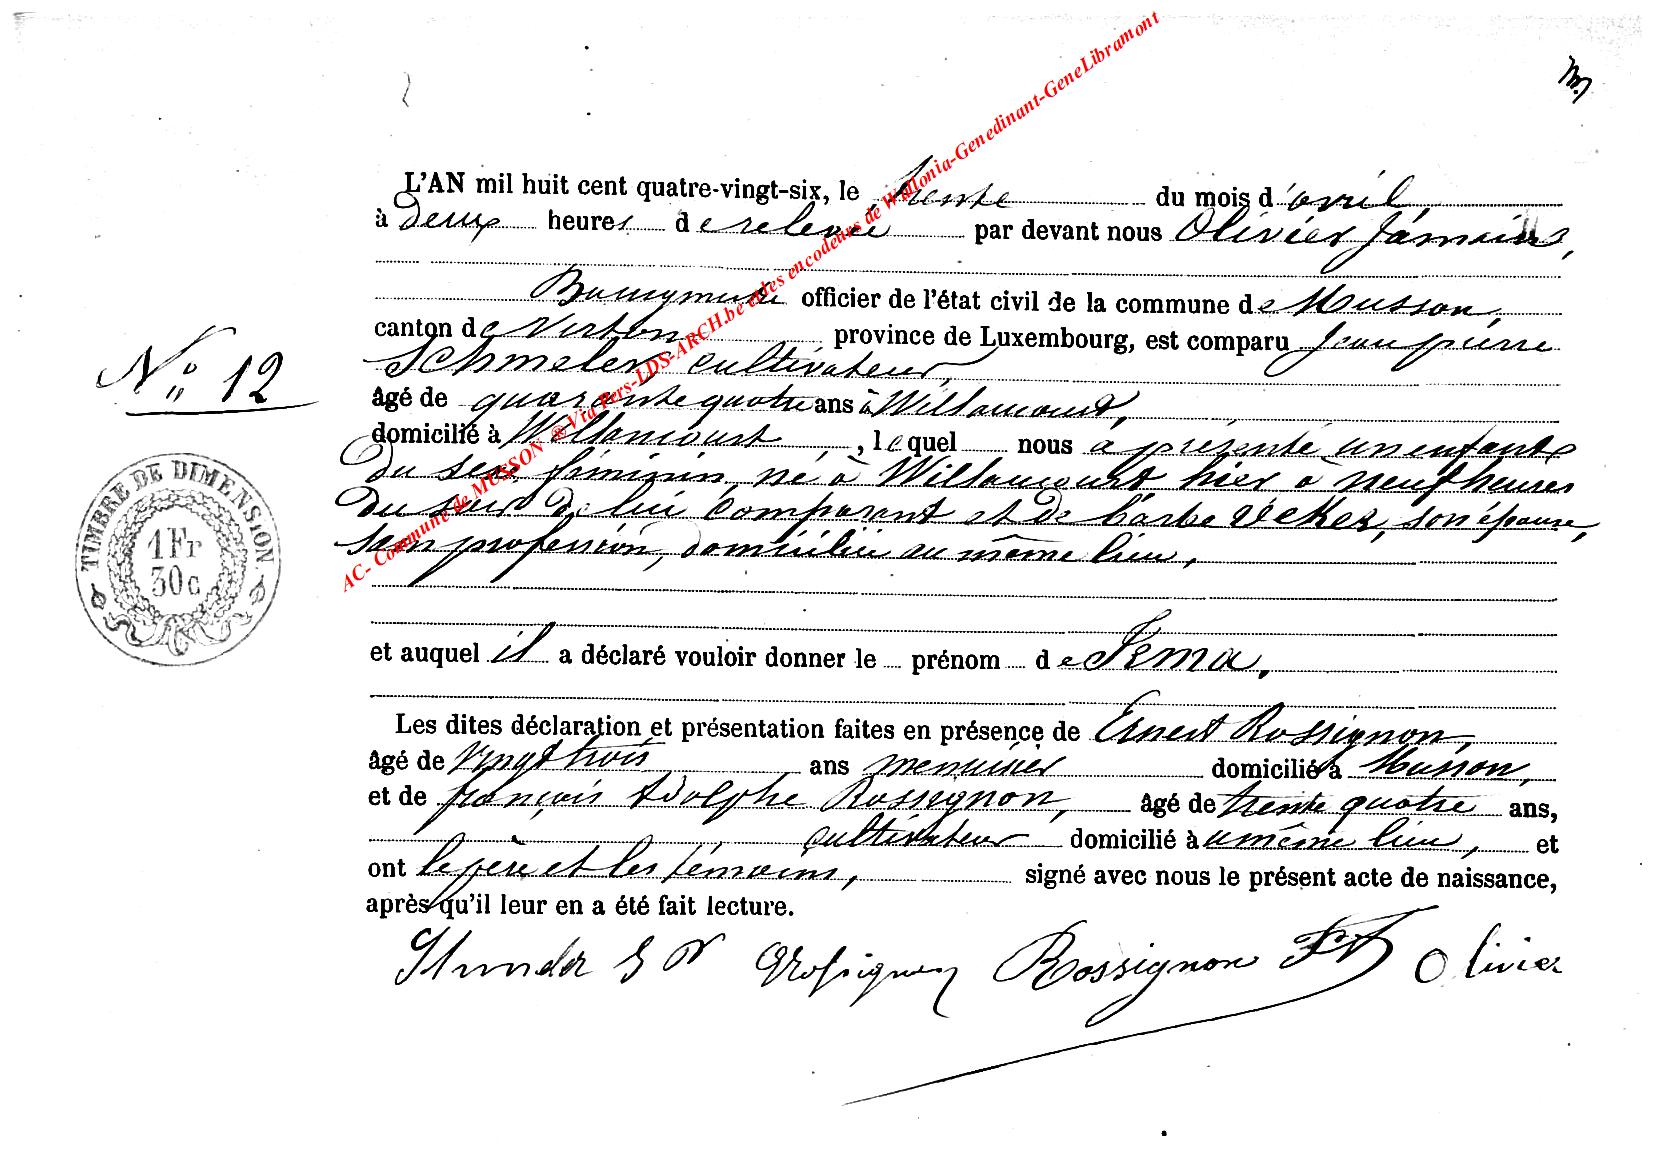 L'AN mil huit cent quatre-vingt-six, le trente du mois d'avril
à deux heures de relevée par devant nous Olivier Jamain,
Bourgmestre officier de l'état civil de la commune de Musson,
canton de Virton province de Luxembourg, est comparu Jean pierre
cultivateur,
âgé de quarante quatre ans à Willancourt,
domicilié à Willancourt, lequel nous a présenté un enfant
du sexe féminin, né à Willancourt hier à neuf heures
du soir de lui comparant et de Barbe son épouse,
sans profession, domiciliée au même lieu,
N° 12
TIMBRE DE DIMENSION
1 Fr
30 c
et auquel il a déclaré vouloir donner le prénom de Irma.
Les dites déclaration et présentation faites en présence de Ernest Rossignon,
âgé de vingt trois ans menuisier domicilié à Musson,
et de françois Adolphe Rossignon, âgé de trente quatre ans,
cultivateur domicilié à u même lieu, et
ont le père et les témoins, signé avec nous le présent acte de naissance,
après qu'il leur en a été fait lecture.
ERossignon Rossignon FA Olivier
AC- Commune de MUSSON ® Via Pers-LDS-ARCH.be et les encodeurs de Wallonia-Genedinant-GeneLibramont